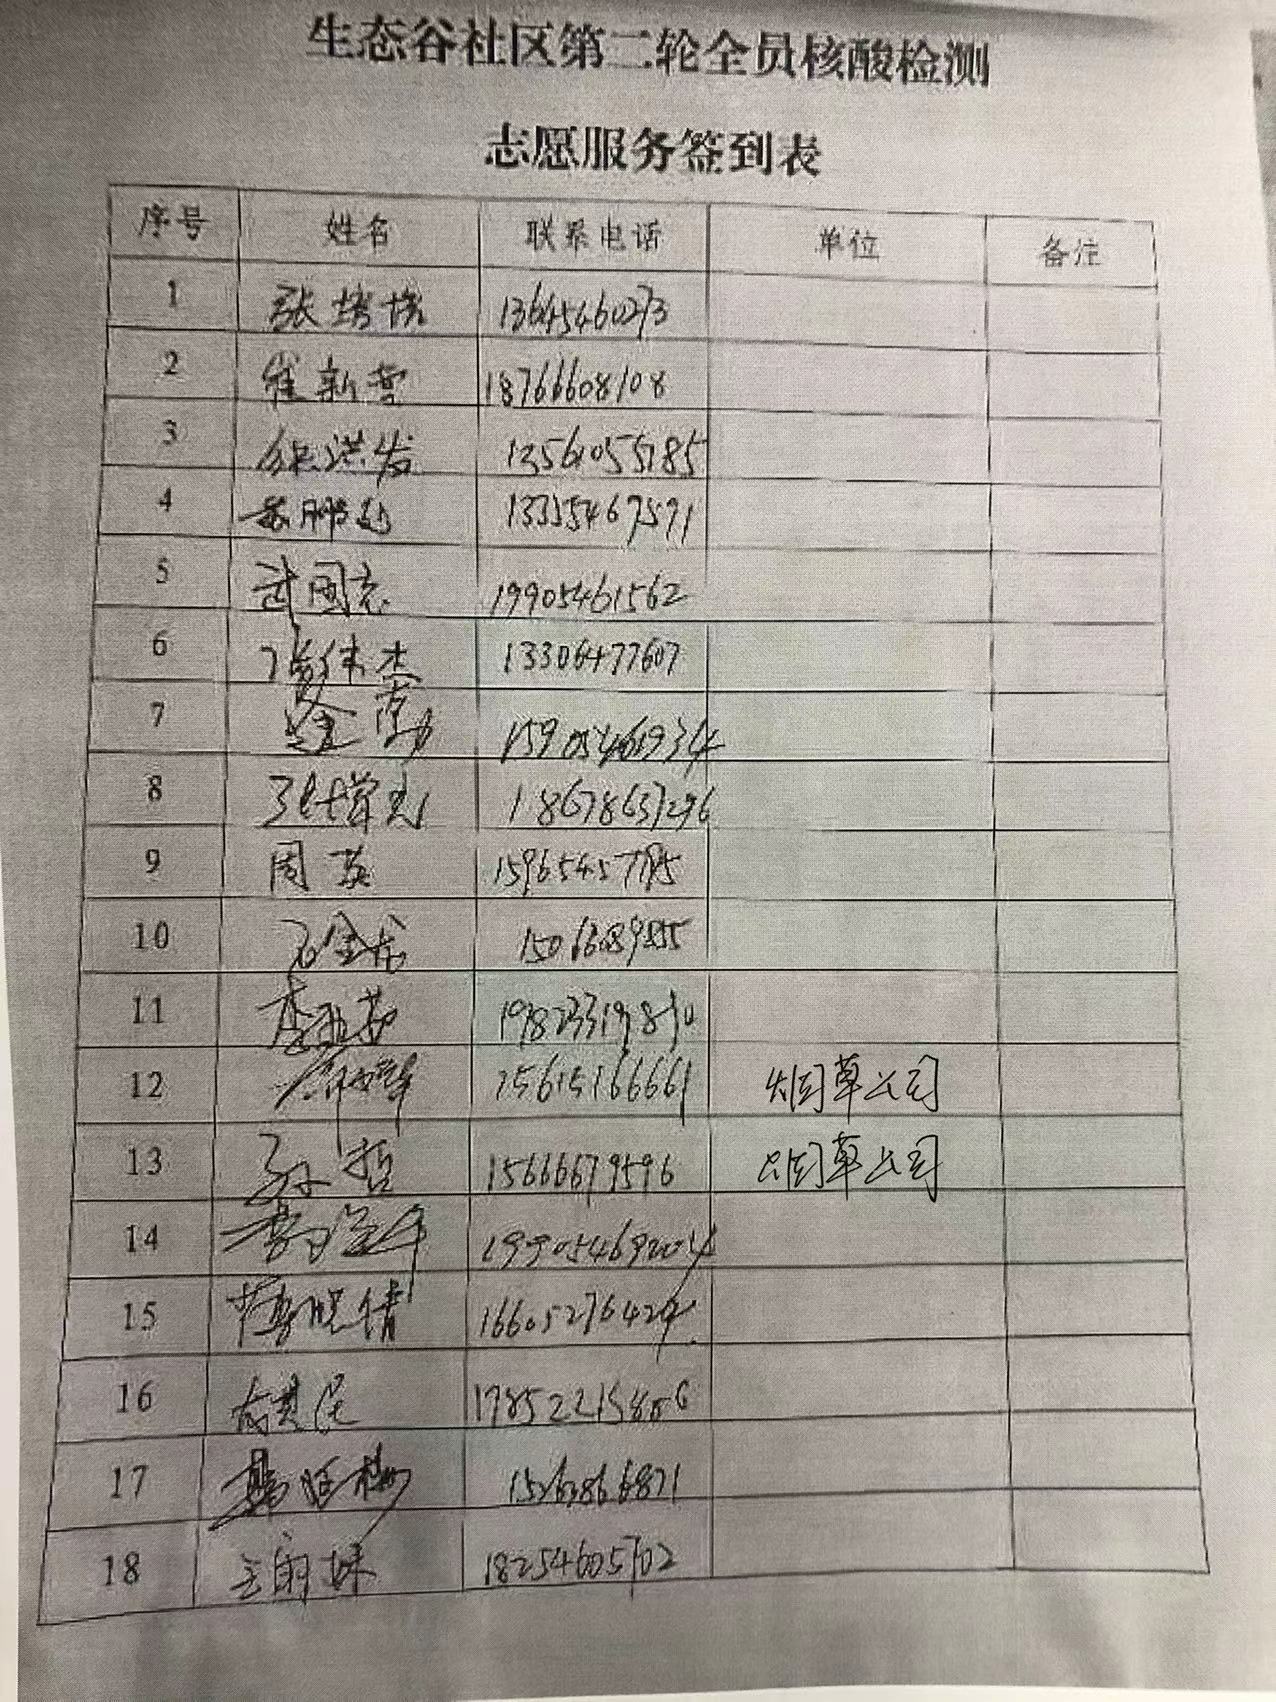 生态谷社区第二轮全员核酸检测
志愿服务签到表
序号 姓名 联系电话 单位 备注
1 张 13645460273
2 崔新营 18766608108
3 徐洪发 13561055785
4 苏鹏 13355467591
5 武国志 19905461562
6 张伟杰 13306477607
7 15905461934
8 张学 18678657296
9 周英 15965457785
10 石金龙
11 李亚茹
12 15615166661 烟草公司
13 孙哲 15666679596 烟草公司
14 19905469204
15 薄晓倩 16605276424
16 尚其民 17852215806
17 15263866871
18 王 妹 18254605702